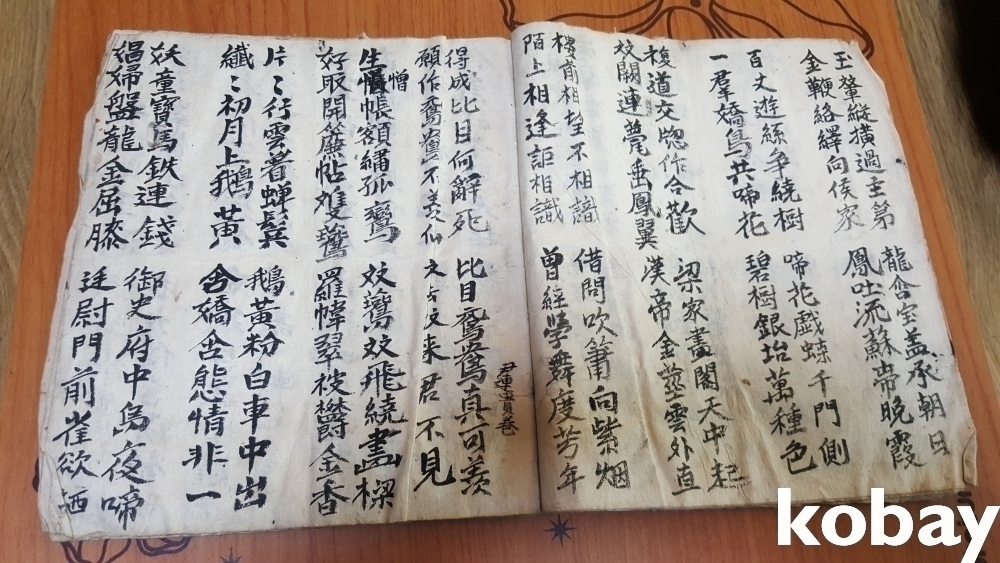 玉輦縱橫過主第
金鞭絡繹向侯家
龍含宝盖承朝日
鳳吐流蘇帶晚霞
百丈遊絲爭繞樹
一羣嬌鳥共啼花
啼花戱蝶千門側
碧樹銀坮萬種色
複道交牕作合歡
双闕連甍垂鳳翼
梁家畵閣天中起
漢帝金莖雲外直
樓前相望不相諳
陌上相逢詎相識
借問吹簫向紫烟
曾經學舞度芳年
得成比目何辭死
願作鴛鴦不羨仙
比目鴛鴦真可羨
双去双来君不見
生憎帳額繡孤鸞
好取開簾帖雙鷰
双鷰双飛繞畵樑
羅幃翠被欝金香
片〻行雲着蟬鬂
纖〻初月上鵝黃
鵝黃粉白車中出
含嬌含態情非一
妖童寶馬鉄連錢
娼婦盤龍金屈膝
御史府中烏夜啼
廷尉門前雀欲栖
kobay